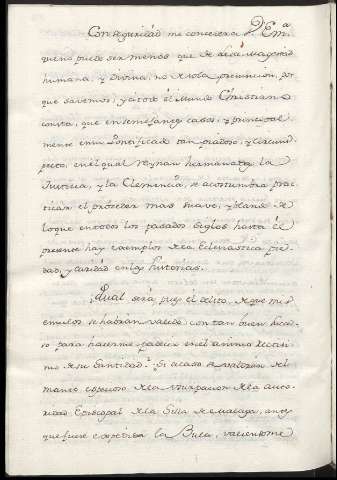 Con seguridad me concederá V. Em.ª
que no puede ser menos que de alta Magestad
humana, y Divina, no de sola presuncion, por
que savemos, y à todo el Mundo Christiano
consta, que en semejantes casos, y principal
mente en un Pontificado tan piadoso, y circuns
pecto, en el qual reynan hermanadas la
Justicia, y la Clemencia, se acostumbra prac
ticar el proceder mas suave, y blando de
lo que en todos los pasados siglos hasta el
presente hay exemplos de la Eclesiastica pie
dad, y caridad en las historias.
Qual será pues el delito, de que mis
emulos se habran valido con tan buen
para hacerme padecer en el animo rectisi
mo de su Santidad? Si acaso se valieron del
manto especioso de la usurpacion de la auto
ridad Episcopal de la Silla de Malaga, antes
que fuese expedida la Bula, valiendome